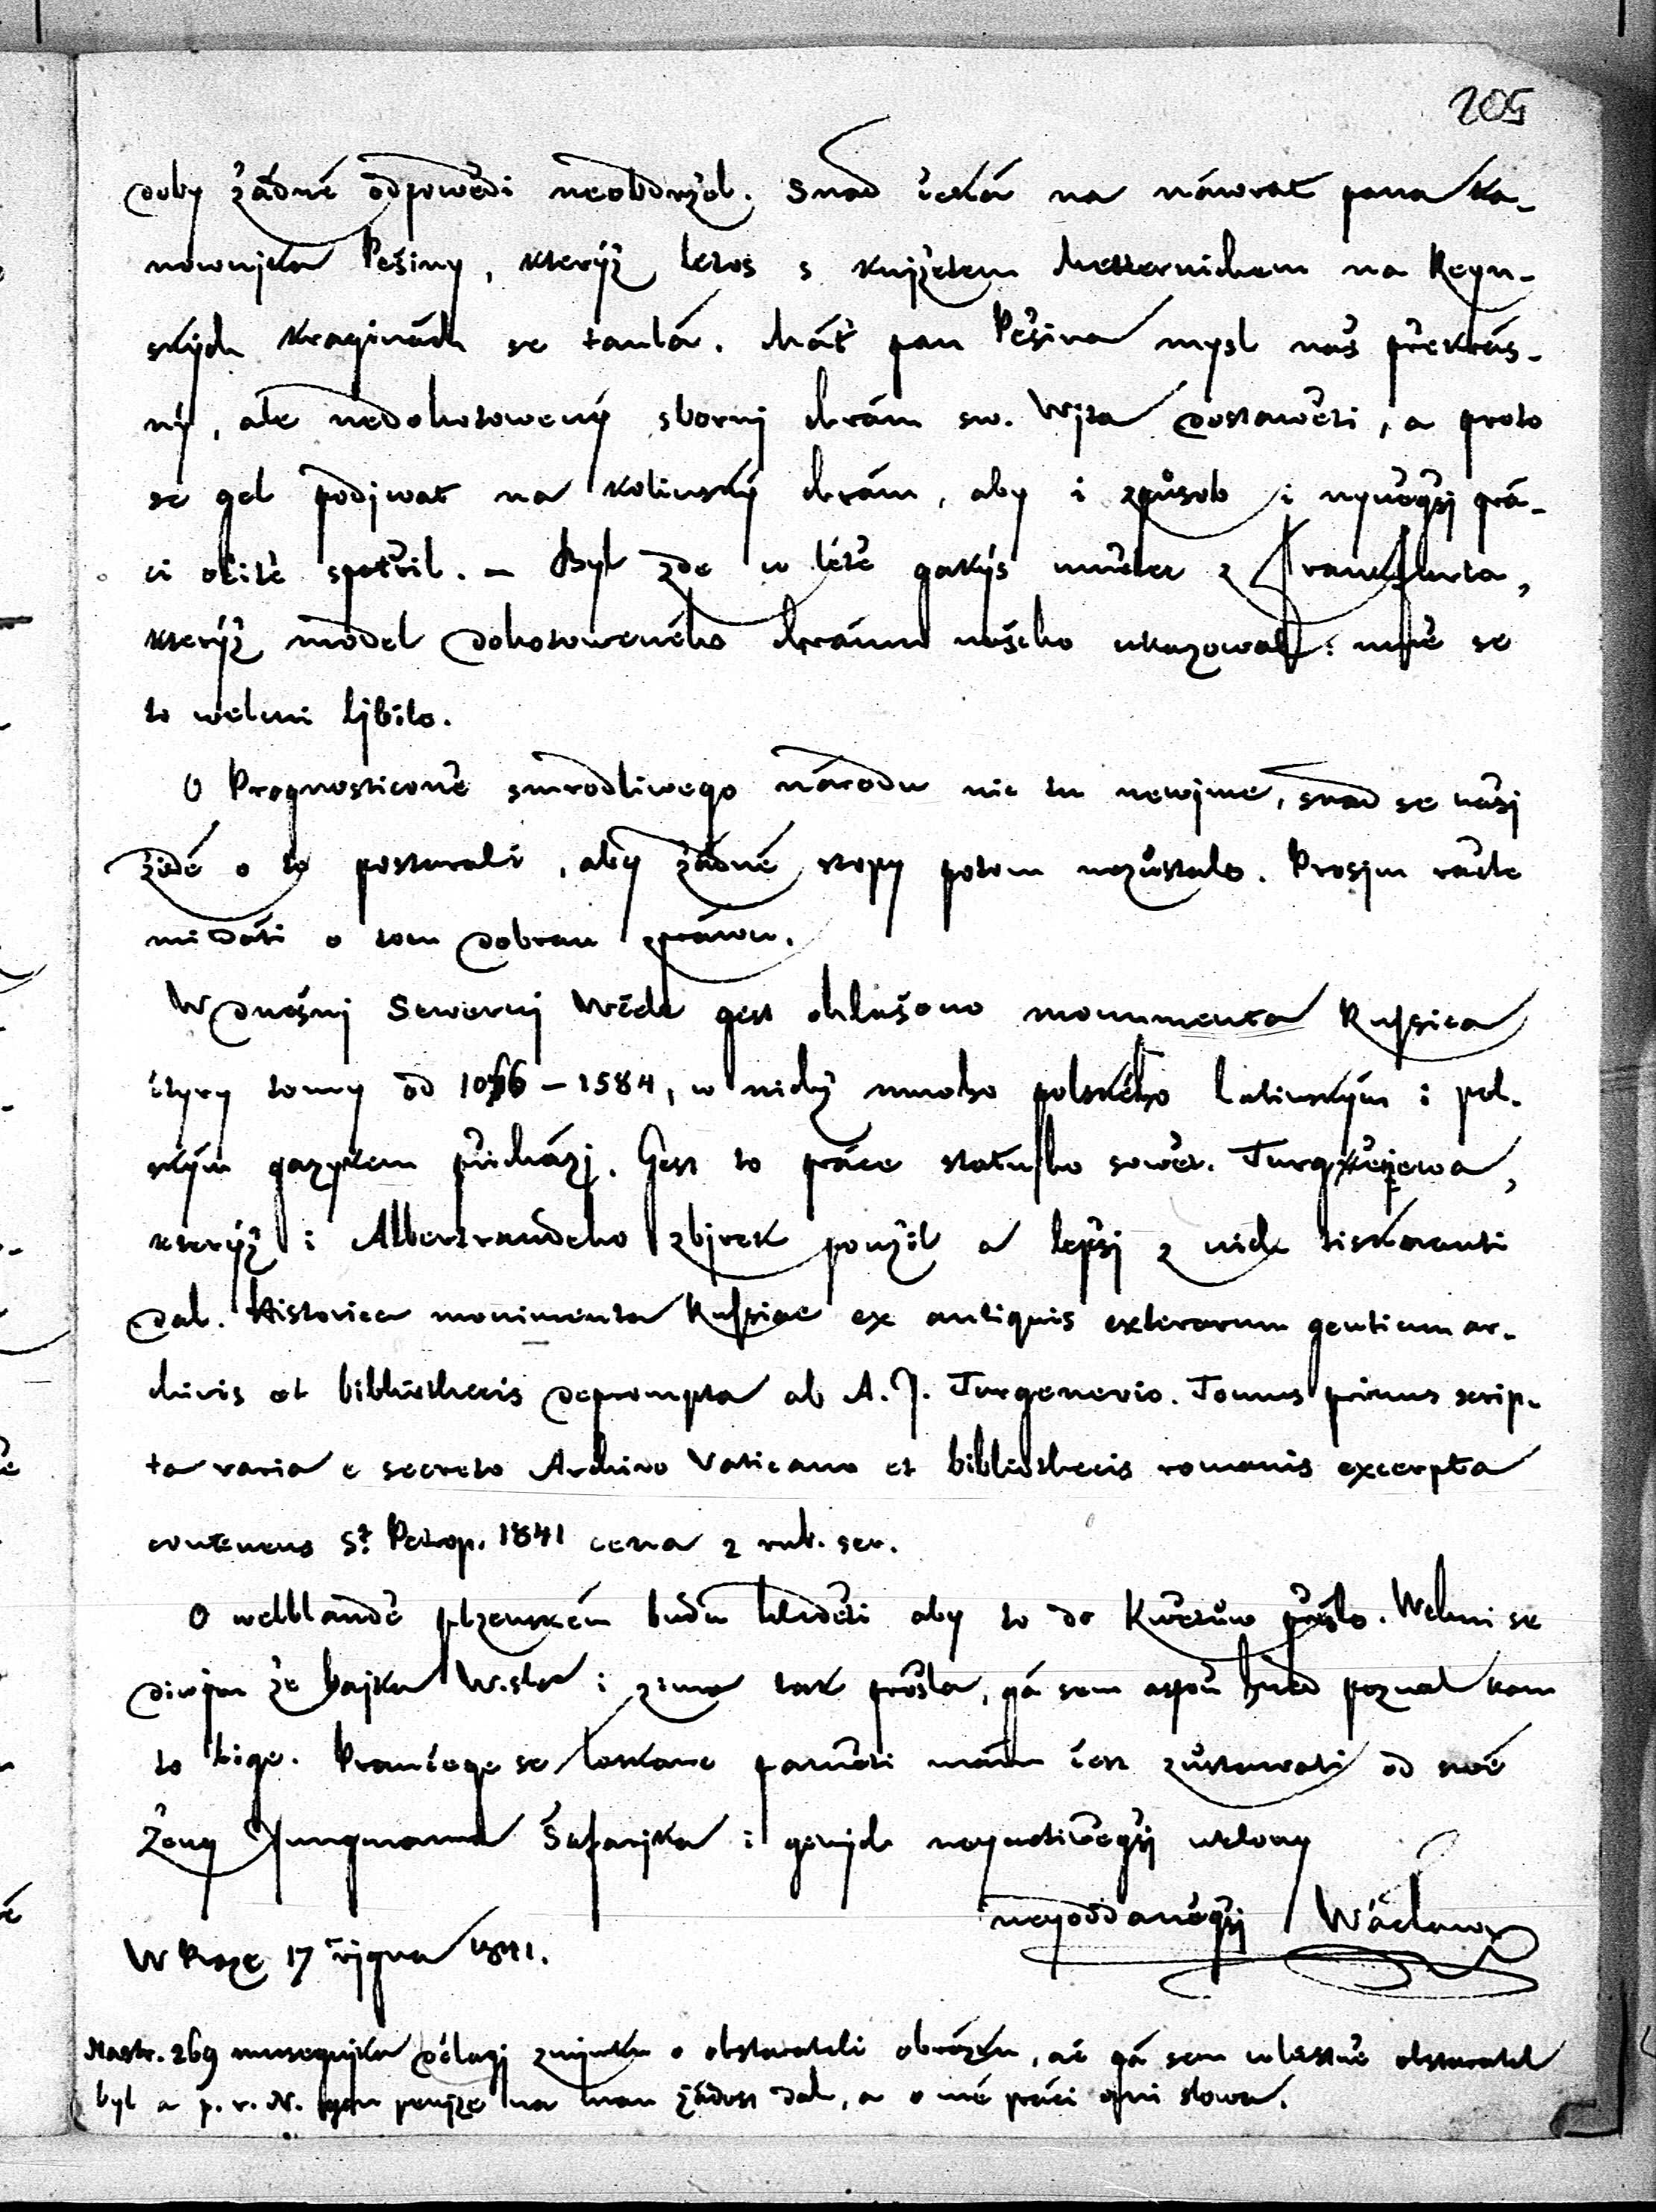 205
doby žádné odpowědi neobdržel. Snad čeká na náwrat pana Ka-
nownjka Pešiny, kterýž letos s knjžetem Metternichem na Reyn-
ských kraginách se taulá. Máť pan Pešina mysl náš překrás-
ný, ale nedohotowený sbornj chrám sw. Wjta dostawěti, a proto
se gel podjwat na kolinský chrám, aby i způsob i nyněgšj prá-
ci očitě spatřil. – Byl zde w létě gakýs umělec z Frankfurta,
kterýž model dohotoweného chrámu našeho ukazowal: mně se
to welmi ljbilo.
O Prognosticoně smrodliwego národu nic tu newjme, snad se našj
židé o to postarali, aby žádné stopy potom nezůstalo. Prosjm račte
mi dáti o tom dobrau zpráwu.
W dnešnj Sewernj Wčele gest ohlášeno monumenta Russica
čtyry tomy od 1076 – 1584, w nichž mnoho polského latinským i pol-
ským gazykem přicházj. Gest to práce statnjho sowět. Turgenjewa,
kterýž i Albertrandeho zbjrek použil a lepšj z nich tisknauti
dal. Historica monimenta Russiae ex antiquis exterarum gentium ar-
chivis et bibliothecis deprompta ab A. J. Turgenevio. Tomus primus scrip-
ta varia e secreto Archivo Vaticano et bibliothecis romanis excerpta
continens St. Petrop. 1841 cena 2 rub. ser.
O welblaudě plzenském budu hleděti aby to do Kwětůw přišlo. Welmi se
diwjm že bajka W.sla i zima tak prošla, gá sem aspoň hned poznal kam
to bige. Poraučege se laskawé paměti mám čest zůstawati od swé
ženy Jungmanna Šafařjka i giných neyuctiwěgšj úklony
neyoddaněgšj Wácslaw
W Praze 17 řjgna 1841.
Na str. 269 musegnjka dělagj zmjnku o obstarateli obrázku, ač gá sem wlastně obstaratel
byl a p. r. N. gen penjze na mau žádost dal, a o mé práci ani slowa.